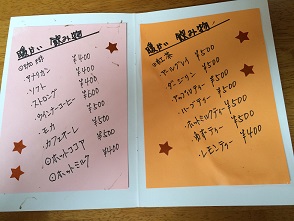 暖かい 飲み物
◎珈琲
アメリカン ¥400
ソフト ¥400
ストロング ¥400
ウインナーコーヒー ¥500
モカ ¥600
カフェオーレ ¥500
◎ホットココア ¥500
◎ホットミルク ¥400
暖かい 飲み物
◎紅茶
アールグレイ ¥500
ダージリン ¥500
アップルティー ¥500
ハーブティー ¥500
ホットミルクティー ¥500
ティー ¥500
レモンティー ¥400